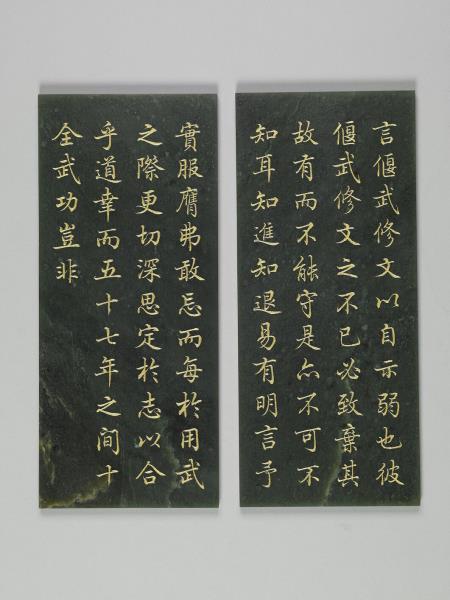 言偃武修文以自示弱也彼
偃武修文之不已必致棄其
故有而不能守是亦不可不
知耳知進知退易有明言予
實服膺弗敢忘而每於用武
之際更切深思定於志以合
乎道幸而五十七年之間十
全武功豈非